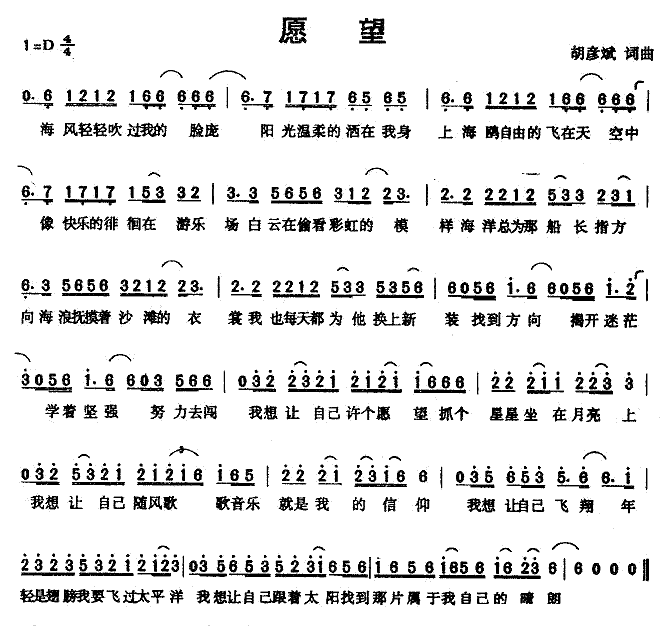 愿 望
1=D 4/4
胡彦斌 词曲
0. 6 1212 166 666 | 6. 7 1717 65 65 | 6. 6 1212 166 666
海 风轻轻吹 过我的 脸庞 阳 光温柔的 洒在 我身 上 海 鸥自由的 飞在天 空中
6. 7 1717 153 32 | 3. 3 5656 312 23. | 2. 2 2212 533 231
像 快乐的徘 徊在 游乐 场 白 云在偷看 彩虹的 模 样 海 洋总为那 船 长 指方
6. 3 5656 3212 23. | 2. 2 2212 533 5356 | 6056 1. 6 6056 1. 2
向 海 浪抚摸着 沙 滩的 衣 裳 我 也每天都 为 他 换上新 装 找到 方 向 揭开 迷 茫
3056 1. 6 603 566 | 032 2321 2121 1666 | 22 211 223 3
学着 坚 强 努 力去闯 我想 让 自己 许个愿 望 抓个 星星 坐 在 月亮 上
032 5321 21216 165 | 22 21 2316 6 | 035 6553 5. 6 6. 1
我想 让 自己 随风歌 歌音乐 就是 我 的 信 仰 我想 让自己 飞 翔 年
2323 5321 2123 | 035 6563 5231 656 | 1656 1653 1623 6 | 6 0 0 0
轻是翅膀我要飞过太平洋 我想让自己跟着太 阳找到那片属于我自己的 晴 朗